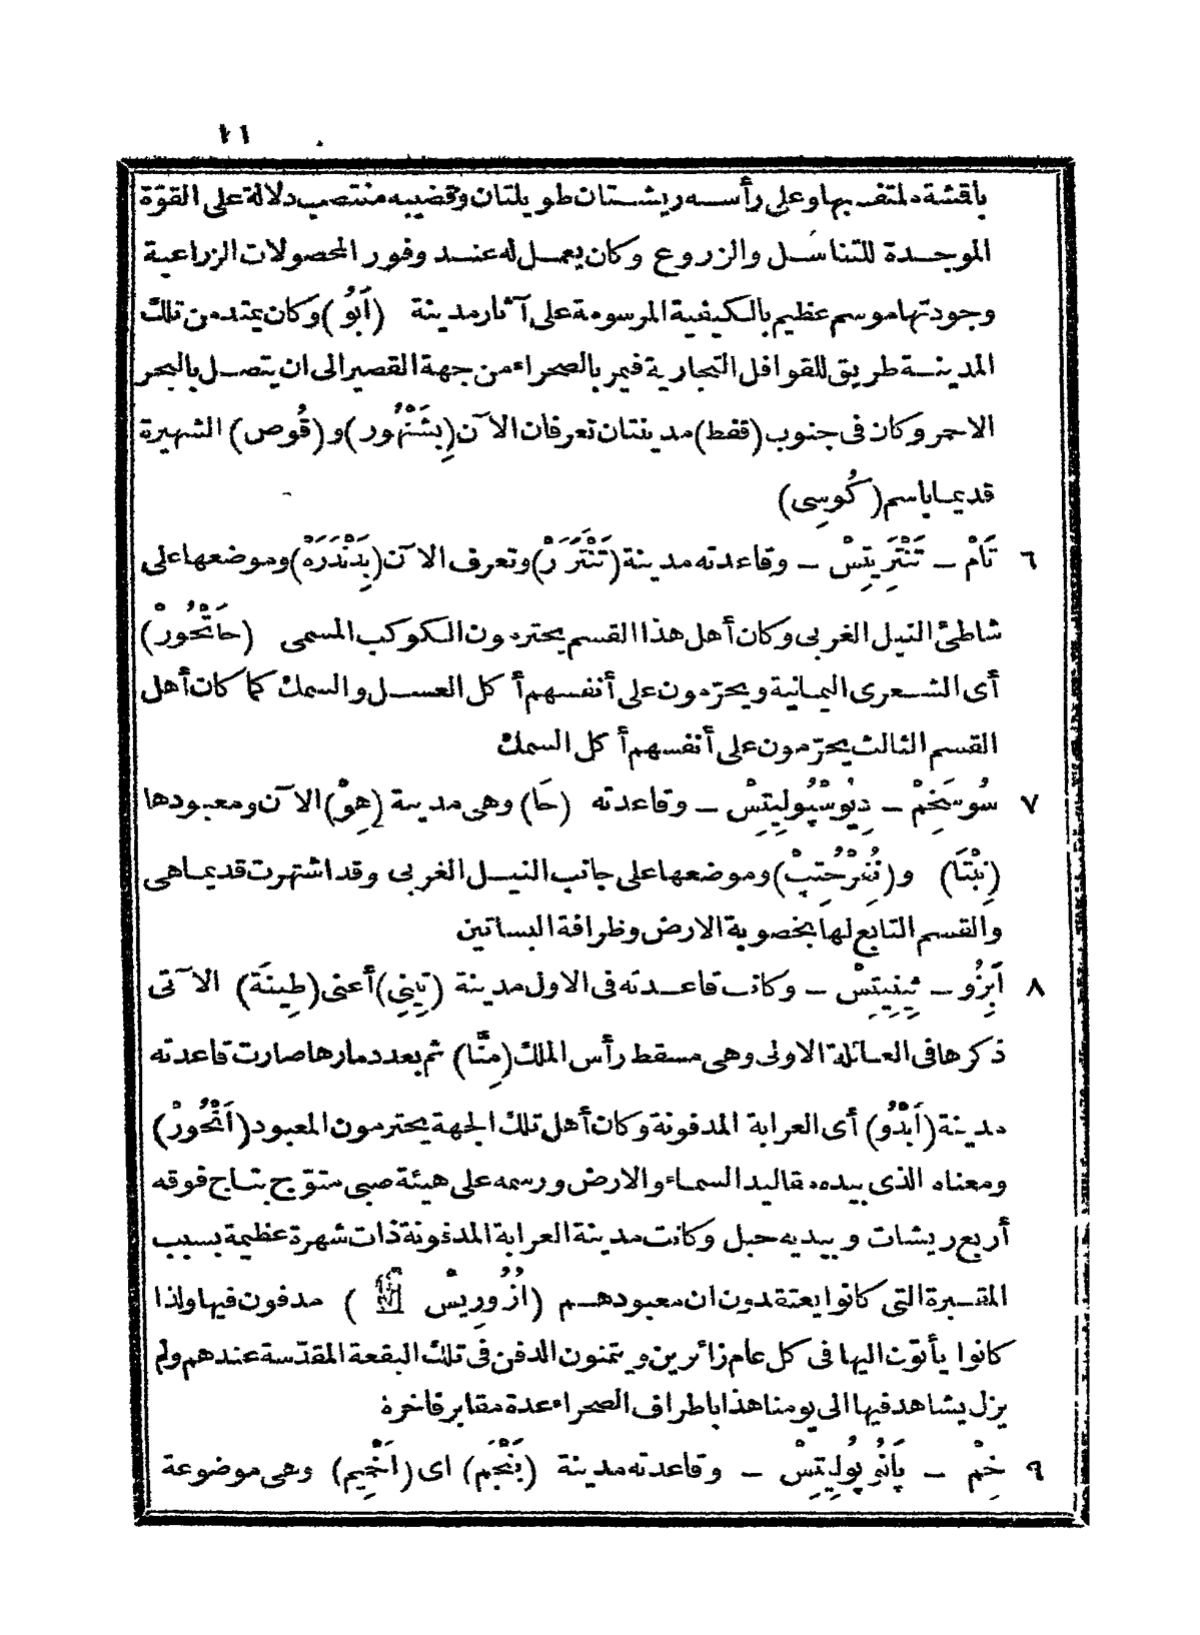 ١١
باقشة ملتف بها وعلى رأسه ريشتان طويلتان وقضيبه منتصب دلالة على القوّة
الموجدة للتناسل والزروع وكان يعمل له عند وفور المحصولات الزراعية
وجودتها موسم عظيم بالكيفية المرسومة على آثار مدينة (أَبُو) وكان يمتد من تلك
المدينة طريق للقوافل التجارية فيمر بالصحراء من جهة القصير الى ان يتصل بالبحر
الاحمر وكان فى جنوب (قفط) مدينتان تعرفان الآن (بِشَنْهُور) و (قُوص) الشهيرة
قديما باسم (كُوسِى)
٦ تَامْ – تَنْتَرِيتِسْ – وقاعدته مدينة (تَنْتَرَرْ) وتعرف الآن (بِدَنْدَرَهْ) وموضعها على
شاطئ النيل الغربى وكان أهل هذا القسم يحترمون الكوكب المسمى (حَاتْحُورْ)
أى الشعرى اليمانية ويحرّمون على أنفسهم أكل العسل والسمك كما كان أهل
القسم الثالث يحرّمون على أنفسهم أكل السمك
٧ سُوسَخِمْ – دِيُوسْپُولِيتِسْ – وقاعدته (حَا) وهى مدينة (هِوْ) الآن ومعبودها
(نِبْتَا) و (نُفِرْحُتِبْ) وموضعها على جانب النيل الغربى وقد اشتهرت قديما هى
والقسم التابع لها بخصوبة الارض وظرافة البساتين
٨ أَبِرُو – ثِينِيتِسْ – وكانت قاعدته فى الاول مدينة (تِينِى) أعنى (طِينَة) الآتى
ذكرها فى العائلة الاولى وهى مسقط رأس الملك (مِنَّا) ثم بعد دمارها صارت قاعدته
مدينة (أَبْدُو) أى العرابة المدفونة وكان أهل تلك الجهة يحترمون المعبود (أَنْحُورْ)
ومعناه الذى بيده مقاليد السماء والارض ورسمه على هيئة صبى متوّج بتاج فوقه
أربع ريشات وبيديه حبل وكانت مدينة العرابة المدفونة ذات شهرة عظيمة بسبب
المقبرة التى كانوا يعتقدون ان معبودهم (أُزُورِيسْ ) مدفون فيها ولذا
كانوا يأتون اليها فى كل عام زائرين ويتمنون الدفن فى تلك البقعة المقدّسة عندهم ولم
يزل يشاهد فيها الى يومنا هذا باطراف الصحراء عدة مقابر فاخرة
٩ خِمْ – پَانُوپُولِيتِسْ – وقاعدته مدينة (بَنْخِمَ) اى (اَخْمِيم) وهى موضوعة